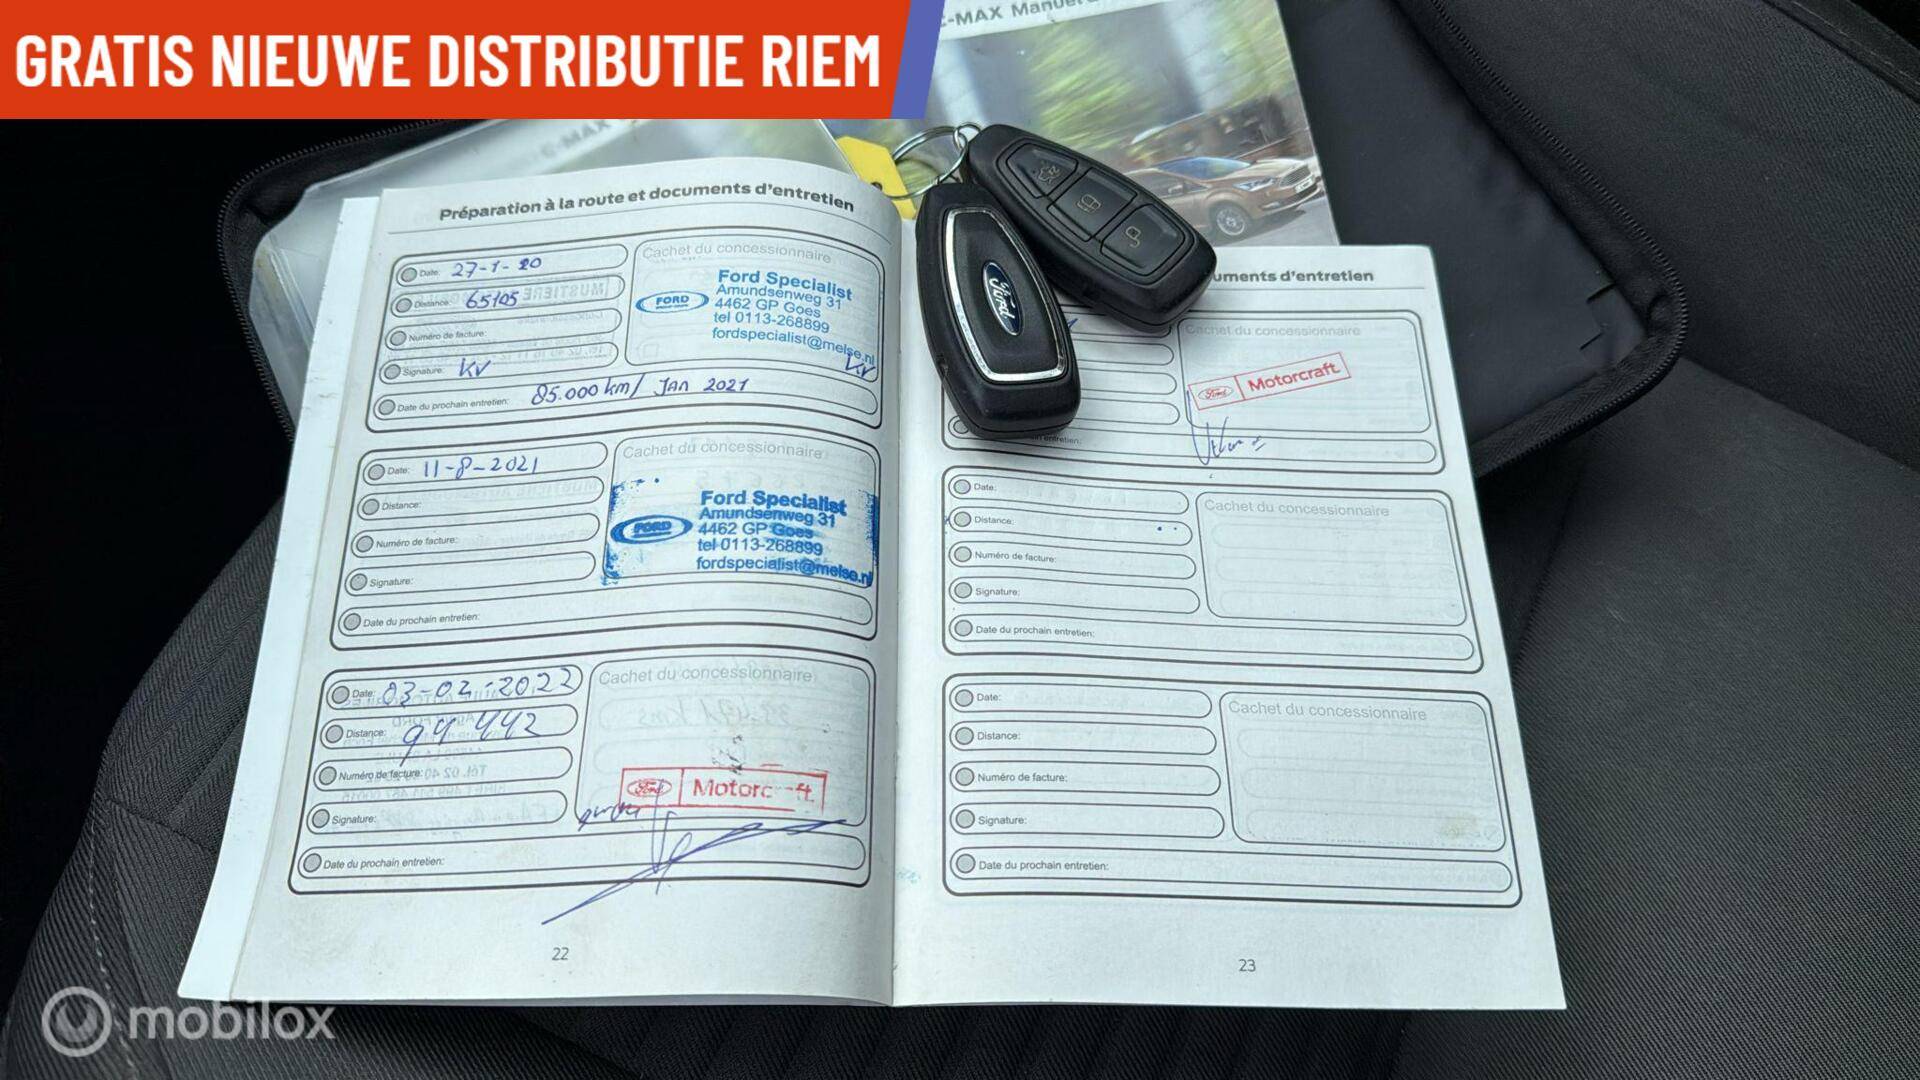 GRATIS NIEUWE DISTRIBUTIE RIEM
C-MAX Manuel
C-MAX
Préparation à la route et documents d'entretien
Date: 27-1-20
Distance: 65105
Numéro de facture:
Signature: KV
Date du prochain entretien: 85.000 km/ JAN 2021
Cachet du concessionnaire
FORD
Ford Specialist
Amundsenweg 31
4462 GP Goes
tel 0113-268899
fordspecialist@melse.nl
KV
Date: 11-8-2021
Distance:
Numéro de facture:
Signature:
Date du prochain entretien:
Cachet du concessionnaire
FORD
Ford Specialist
Amundsenweg 31
4462 GP Goes
tel 0113-268899
fordspecialist@melse.nl
Date: 03-02-2022
Distance: 94 442
Numéro de facture:
Signature:
Date du prochain entretien:
Cachet du concessionnaire
Ford Motorc ft
22
Ford
uments d'entretien
Cachet du concessionnaire
Ford Motorcraft
entretien:
Date:
Distance:
Numéro de facture:
Signature:
Date du prochain entretien:
Cachet du concessionnaire
Date:
Distance:
Numéro de facture:
Signature:
Date du prochain entretien:
Cachet du concessionnaire
23
mobilox